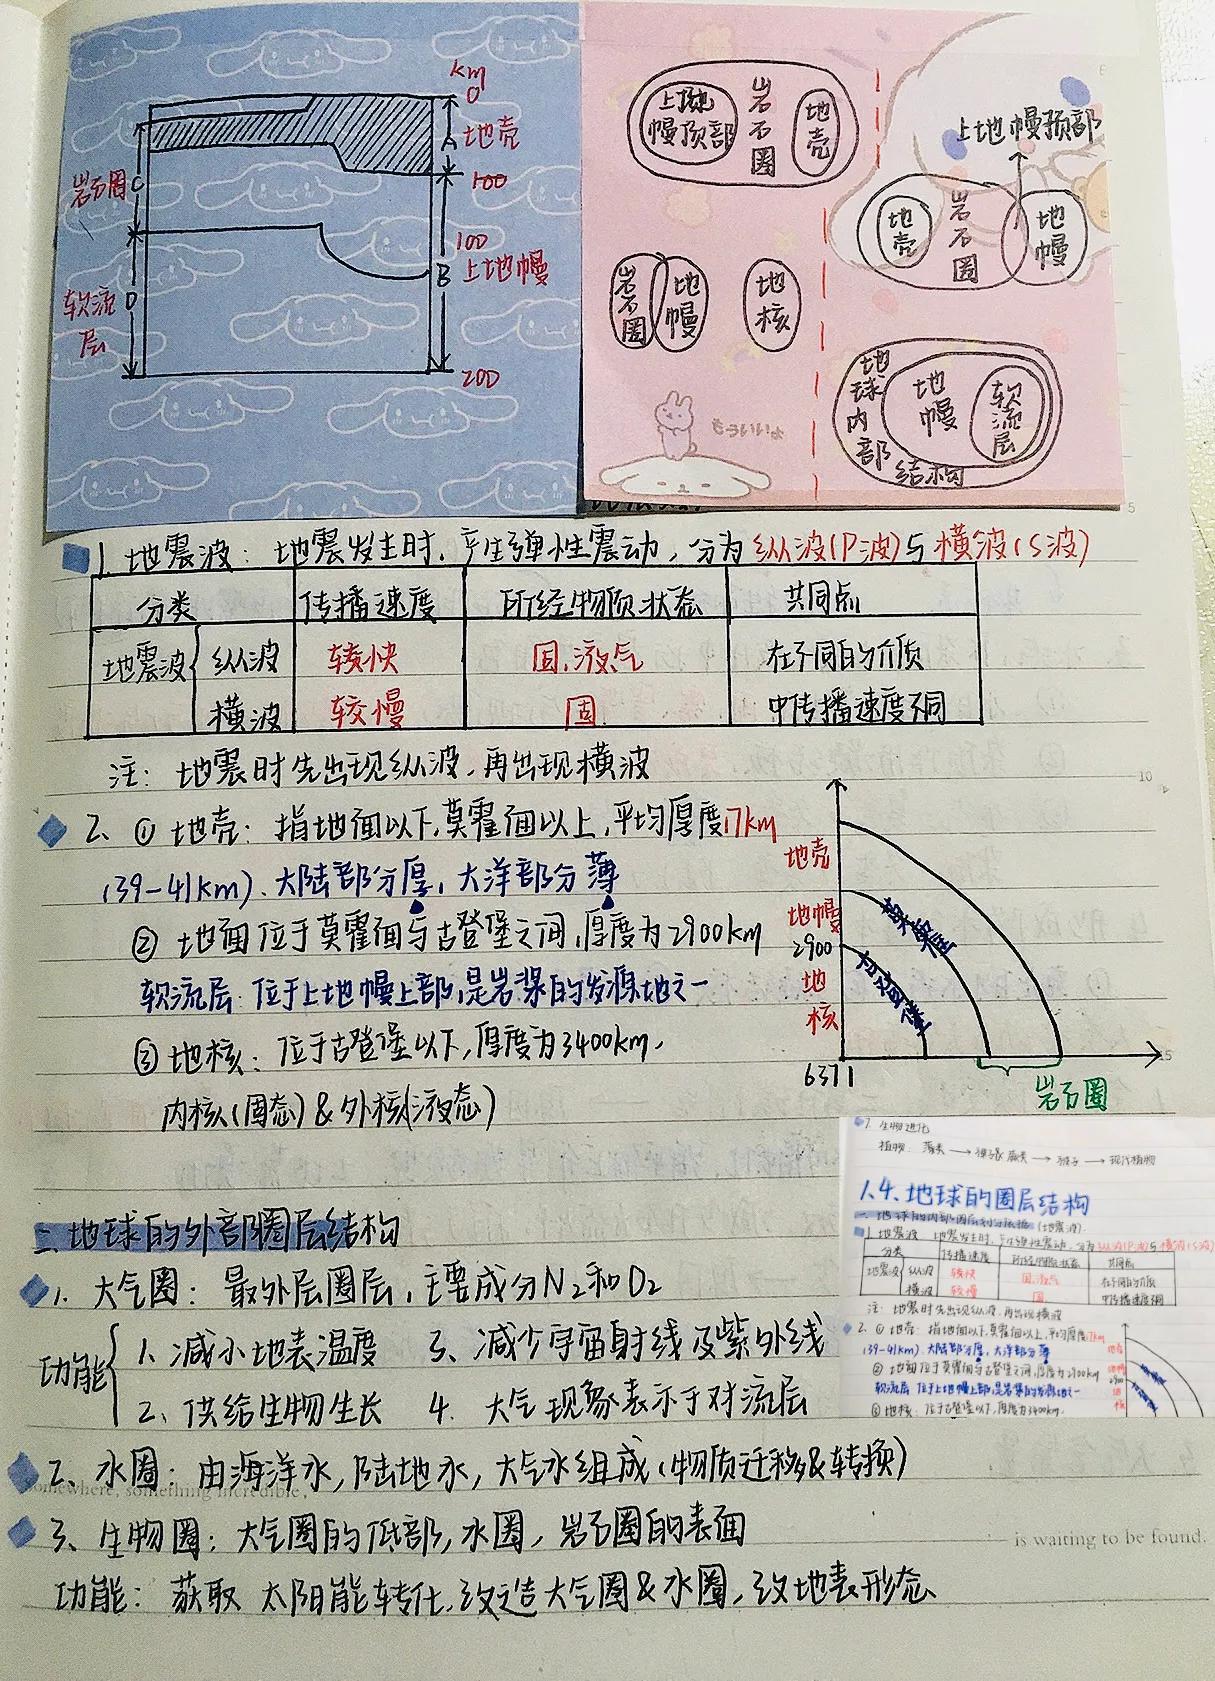 km
0
A 地壳
100
岩石圈 C
100
上地幔
B
软流层 D
200
上地幔顶部 岩石圈 地壳
上地幔顶部
地壳 岩石圈 地幔
岩石圈 地幔 地核
地球内部结构 地幔 软流层
1. 地震波：地震发生时，产生弹性震动，分为纵波(P波)与横波(S波)
分类 传播速度 所经物质状态 共同点
地震波 纵波 较快 固.液.气 在不同的介质
横波 较慢 固 中传播速度不同
注：地震时先出现纵波，再出现横波
2、① 地壳：指地面以下，莫霍面以上，平均厚度17km
(39-41km)．大陆部分厚，大洋部分薄
② 地面位于莫霍面与古登堡之间，厚度为2900km
软流层：位于上地幔上部，是岩浆的发源地之一
③ 地核：位于古登堡以下，厚度为3400km，
内核(固态)&外核(液态)
地壳
地幔
2900
地核
6371
莫霍
古登堡
岩石圈
二、地球的外部圈层结构
1、大气圈：最外层圈层，主要成分N2和O2
功能 1、减小地表温度 3、减少宇宙射线及紫外线
2、供给生物生长 4、大气现象表示于对流层
2、水圈：由海洋水，陆地水，大气水组成(物质迁移&转换)
somewhere, something incredible,
3、生物圈：大气圈的低部，水圈，岩石圈的表面
is waiting to be found.
功能：获取太阳能转化，改造大气圈&水圈，改地表形态
7. 生物进化
植物：藻类→蕨类→裸子→现代植物
1.4、地球的圈层结构
1 地震波：地震发生时，产生弹性震动，分为纵波(P波)与横波(S波)
分类 传播速度 所经物质状态 共同点
地震波 纵波 较快 固.液.气 在不同的介质
横波 较慢 固 中传播速度不同
注：地震时先出现纵波，再出现横波
2、① 地壳：指地面以下，莫霍面以上，平均厚度17km
(39-41km)．大陆部分厚，大洋部分薄
② 地面位于莫霍面与古登堡之间，厚度为2900km
软流层：位于上地幔上部，是岩浆的发源地之一
③ 地核：位于古登堡以下，厚度为3400km．
地壳
地幔
2900
地核
5
10
15